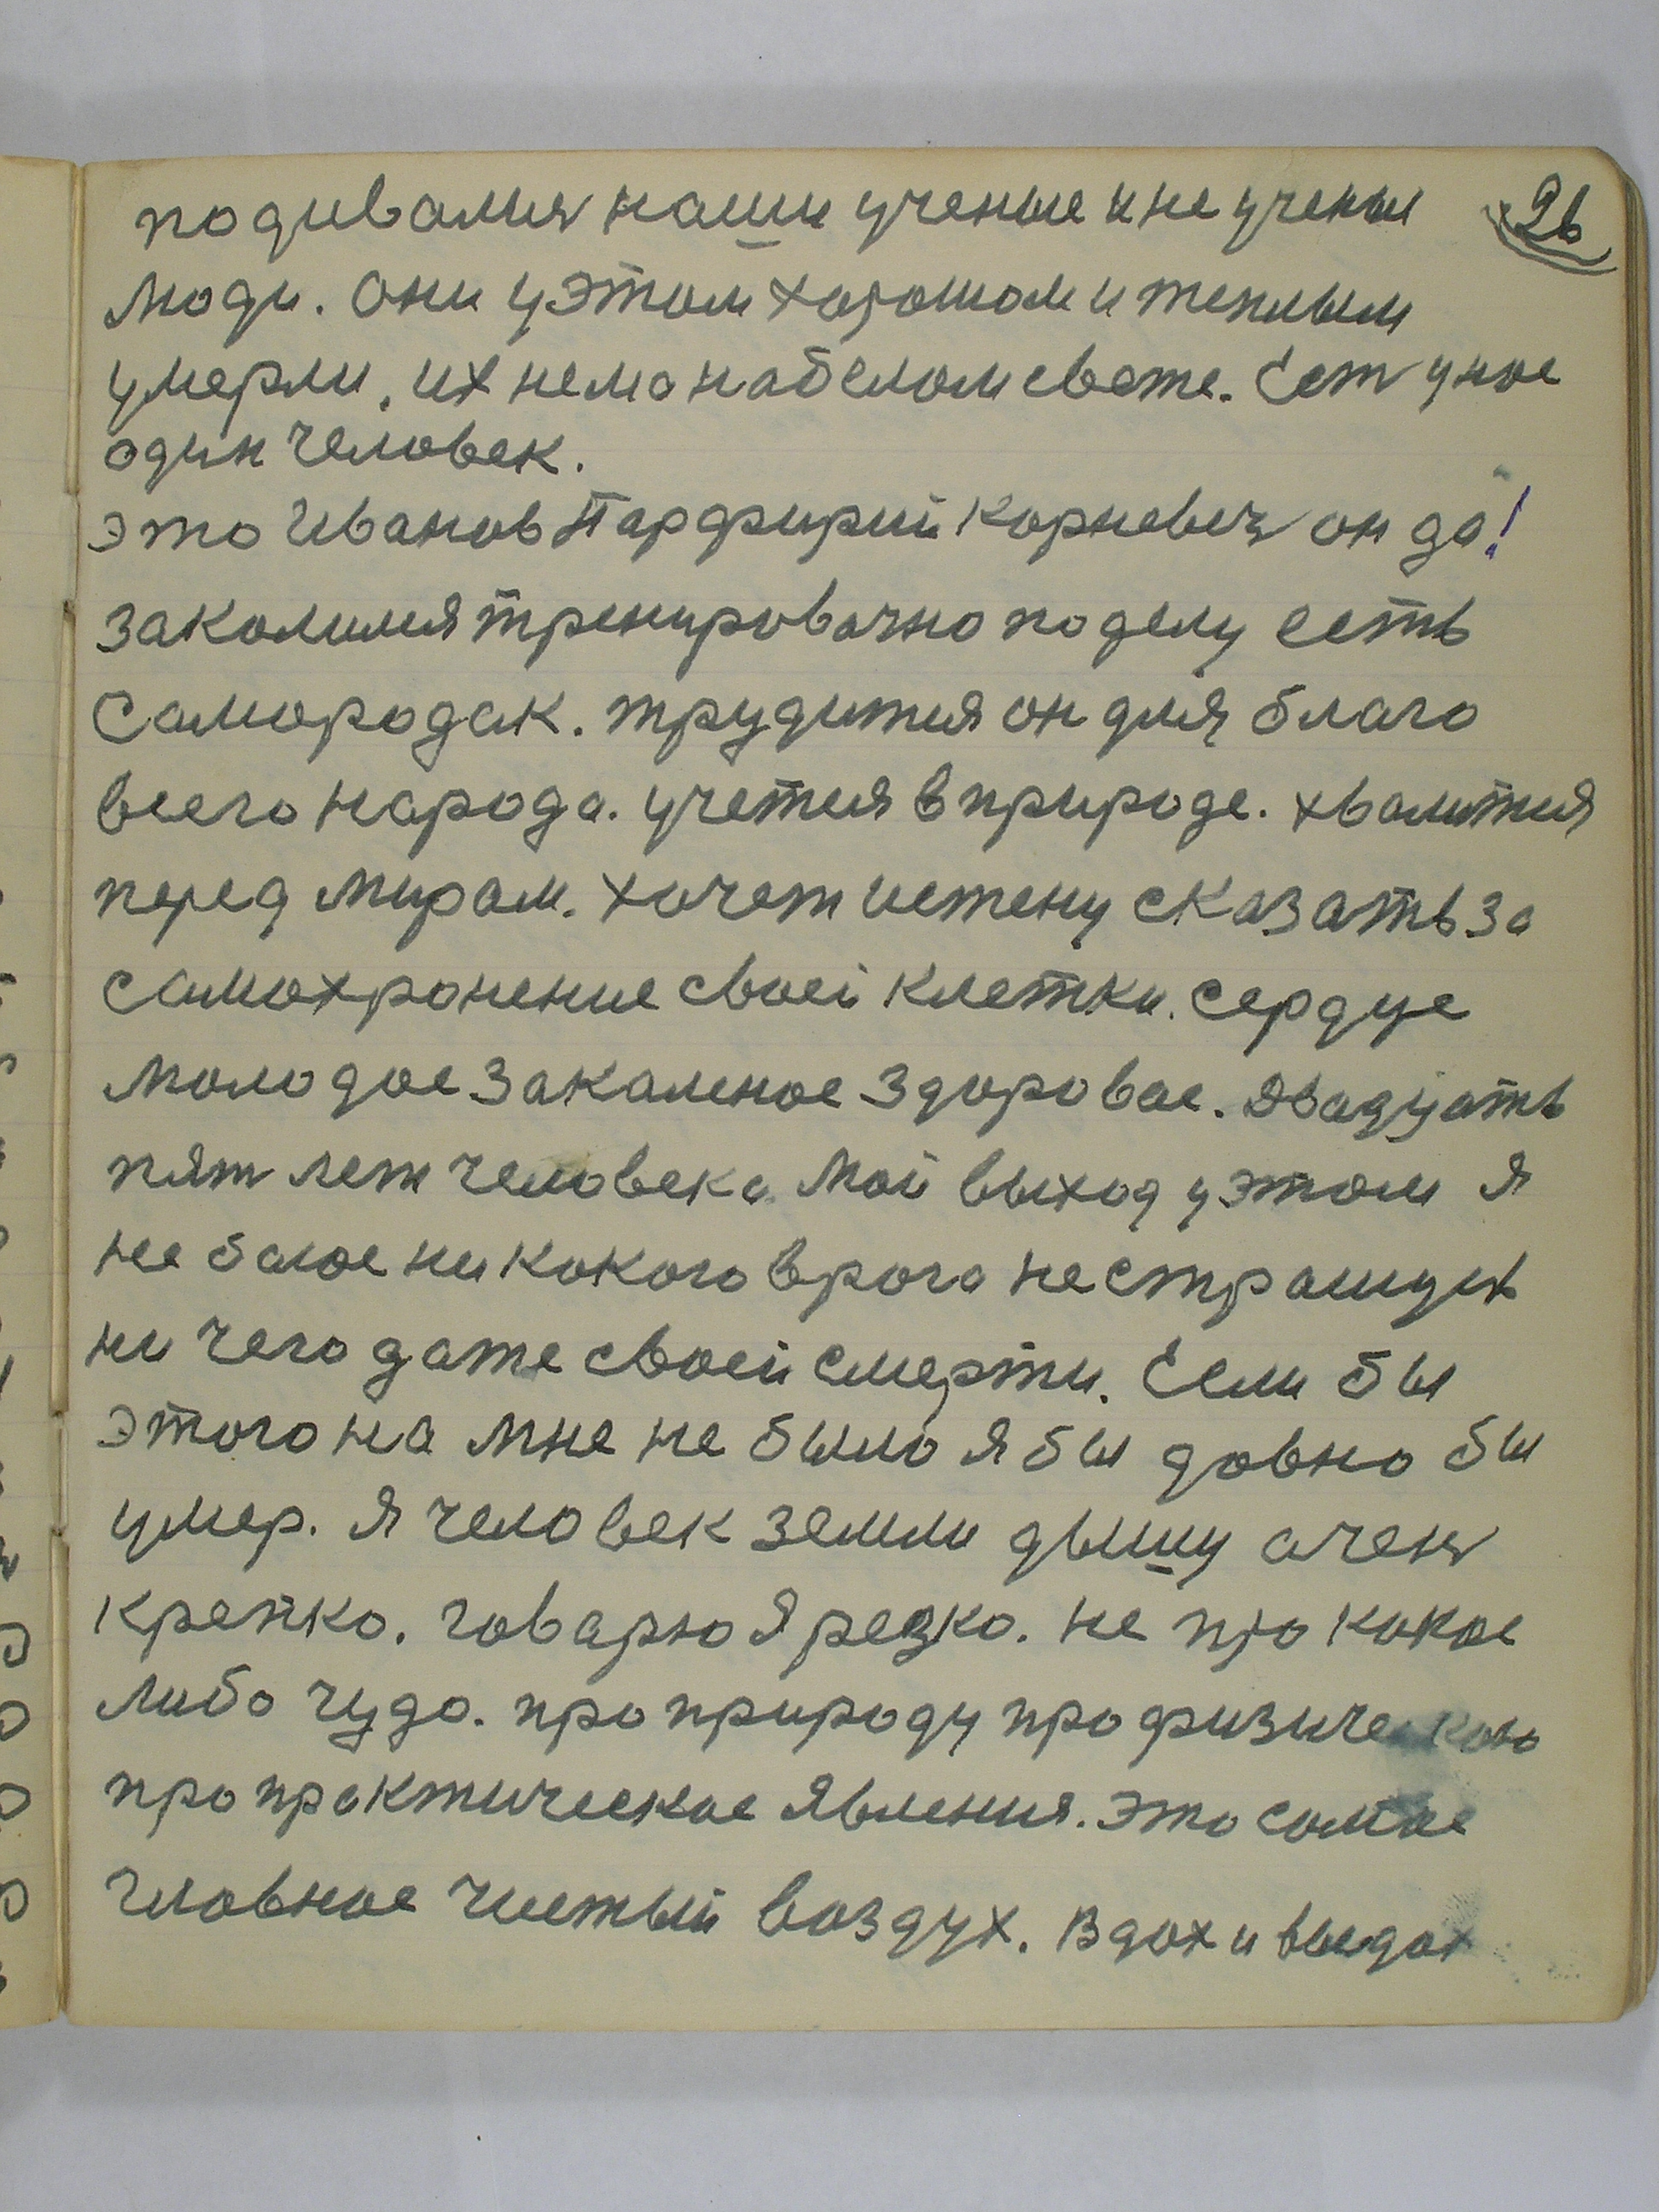 подивалися наши ученые и не учены 26
люди. Они у этом хорошом и теплым
умерли, их нема на белом свете. Есть у нас
один человек.
это Иванов Парфирий Корневеч он да!
закалился тренировачно по делу есть
Самородак. трудится он для благо
всего народа. учется в природе. хвалится
перед мирам. хочет истену сказать за
самохронение своей клетки. сердце
молодое закаленое здоровае. Двадцать
пять лет человека Мой выход у этом Я
не баюс ни кокого врага не стращусь
ни чего даже своей смерти. Если бы
этого на мне не было я бы довно бы
умер. Я человек земли дышу очень
крепко. говарю Я резко. не про кокое
либо чудо. про природу про физическою
про практическае Явления. Это самое
гловное чистый воздух. Вдох и выдох